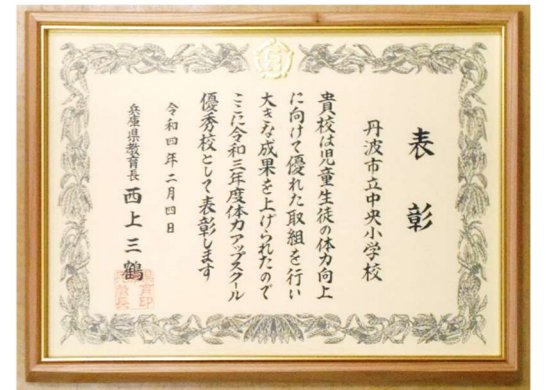 表彰
丹波市立中央小学校
貴校は児童生徒の体力向上
に向けて優れた取組を行い
大きな成果を上げられたので
ここに令和三年度体力アップスクール
優秀校として表彰します
令和四年二月四日
兵庫県教育長 西上三鶴